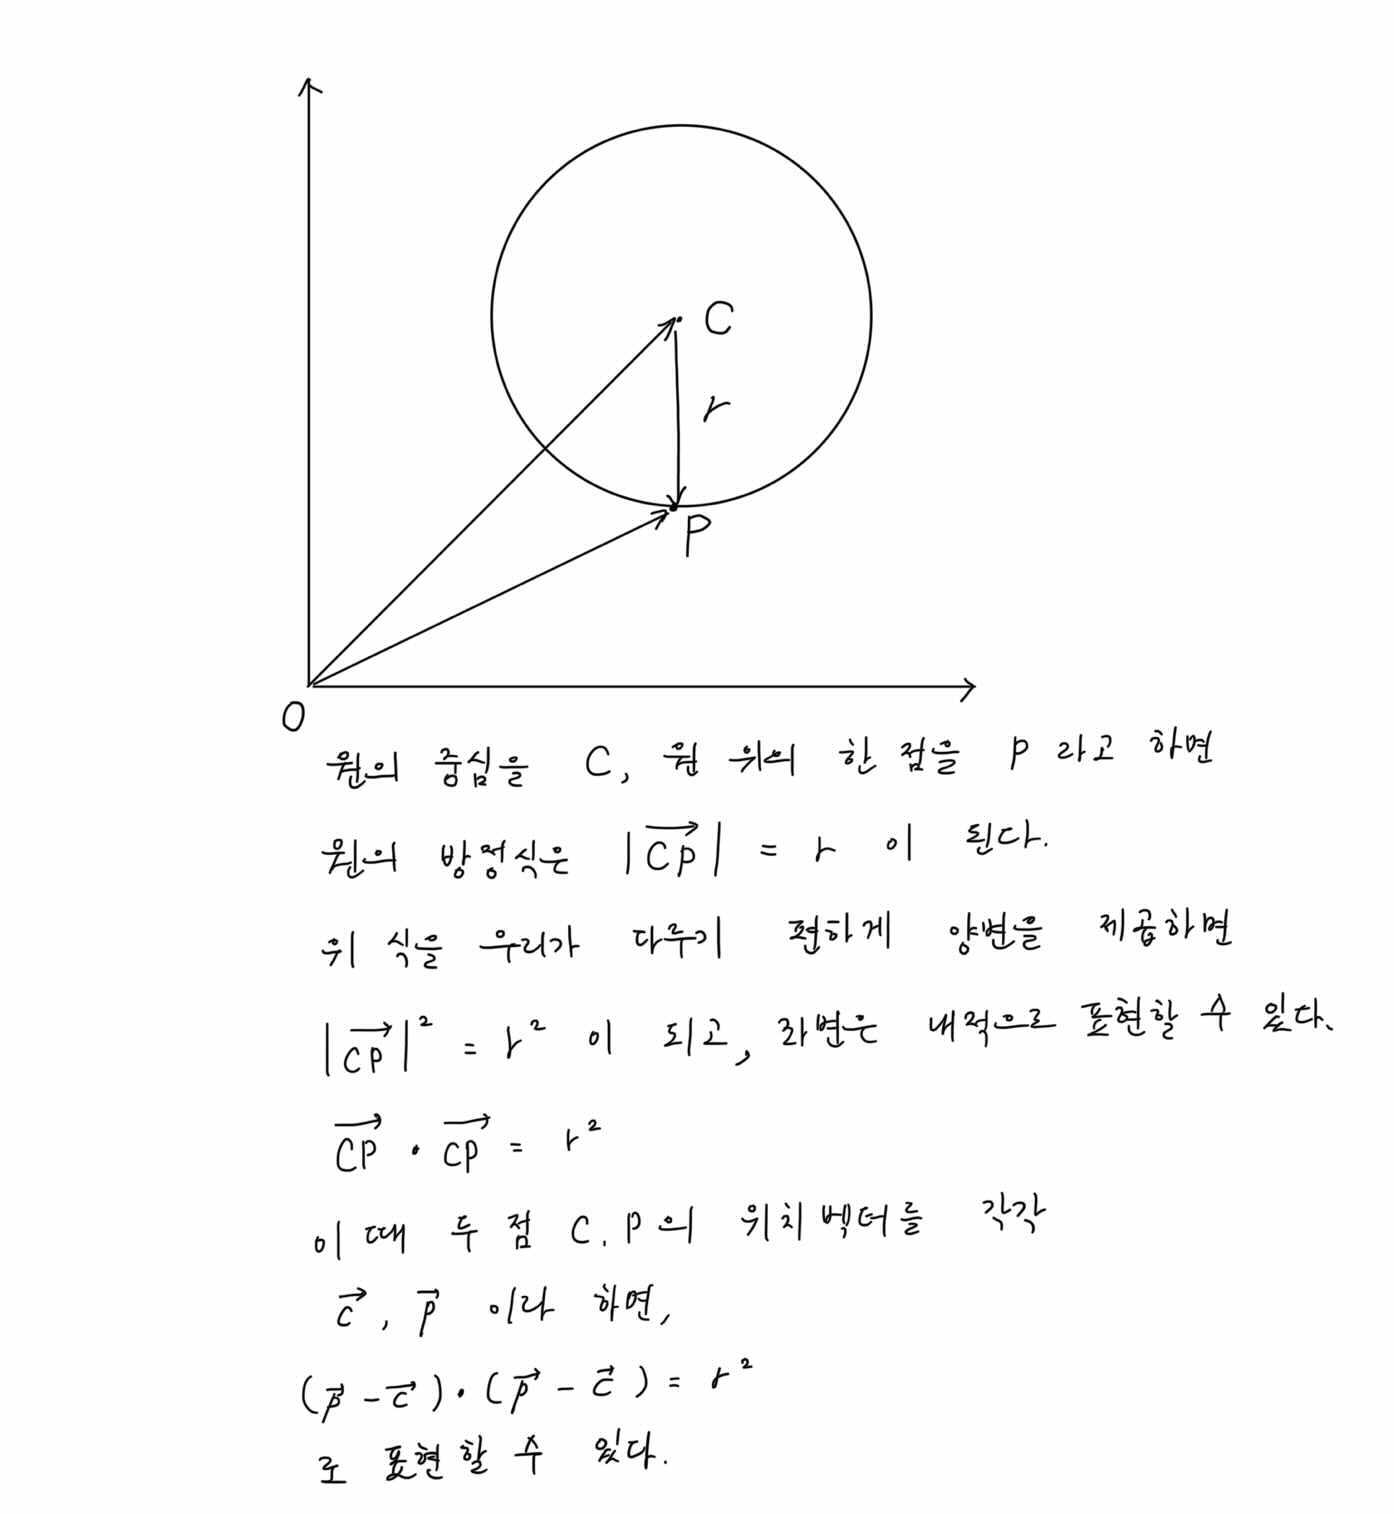 C
r
P
O
원의 중심을 C, 원 위의 한 점을 P 라고 하면
원의 방정식은 |\overrightarrow{CP}| = r 이 된다.
위 식을 우리가 다루기 편하게 양변을 제곱하면
|\overrightarrow{CP}|² = r² 이 되고, 좌변은 내적으로 표현할 수 있다.
\overrightarrow{CP} · \overrightarrow{CP} = r²
이 때 두 점 C, P의 위치벡터를 각각
\vec{c}, \vec{p} 이라 하면,
(\vec{p} - \vec{c}) · (\vec{p} - \vec{c}) = r²
로 표현할 수 있다.